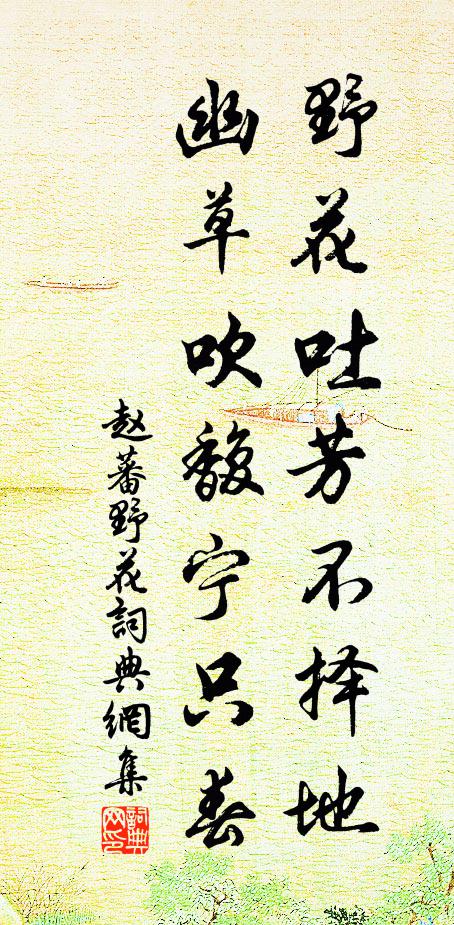 野花吐芳不择地
幽草吹馥宁只春
赵蕃野花詞典網集
詞典
网印